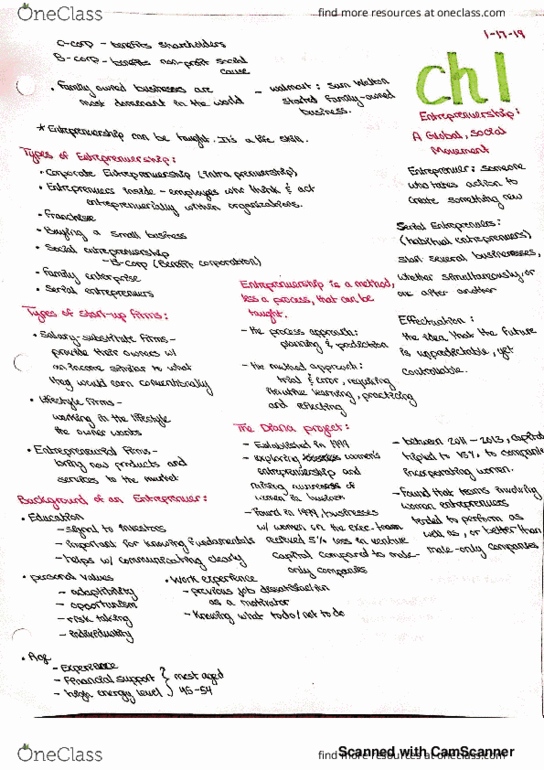 OneClass
find more resources at oneclass.com
1-17-19
C-corp - benefits shareholders
B-corp - benefits non-profit social
cause
• Family owned businesses are
most dominant in the world
- walmart : Sam Walton
started family-owned
business.
* Entrepreneurship can be taught. It's a life skill.
ch 1
Entrepreneurship:
A Global, social
Movement
Entreprenuer: someone
who takes action to
create something new
Serial Entreprenuers:
(habitual entrepreneurs)
start several businesses,
whether simultaneously or
one after another
Effectuation:
the idea that the future
is unpredictable, yet
controllable.
Types of Entrepreneurship:
• Corporate Entrepreneurship (intraprenuership)
• Entreprenuers inside - employees who think & act
entreprenuerially within organizations.
• Franchise
• Buying a small business
• Social entrepreneurship
- B-corp (Benefit corporation)
• Family enterprise
• Serial entreprenuers
Entreprenuership is a method,
less a process, that can be
taught.
- the process approach:
planning & prediction
- the method approach:
trial & error, requiring
iterative learning, practicing
and reflecting
Types of start-up firms:
• Salary-substitute firms -
provide their owners w/
an income similar to what
they would earn conventionally
• Lifestyle firms -
working in the lifestyle
the owner wants
• Entreprenuerial Firms -
bring new products and
services to the market
The Diana project:
- Established in 1999
- exploring women's
entreprenuership and
raising awareness of
women in business
- Found in 1999, businesses
w/ women on the exec. team
received 5% less in venture
capital compared to male-
only companies
- between 2011 - 2013, capital
tripled to 15% to companies
incorporating women.
- Found that teams involving
women entreprenuers
tended to perform as
well as, or better than
male-only companies
Background of an Entreprenuer:
• Education
- signal to investors
- important for knowing fundamentals
- helps w/ communicating clearly
• personal values
- adaptibility
- opportunism
- risk taking
- individuality
• Work experience
- previous job dissatisfaction
as a motivator
- Knowing what to do/not to do
• Age
- Experience
- financial support
- high energy level
most aged
45-54
OneClass
find more resources at oneclass.com
Scanned with CamScanner